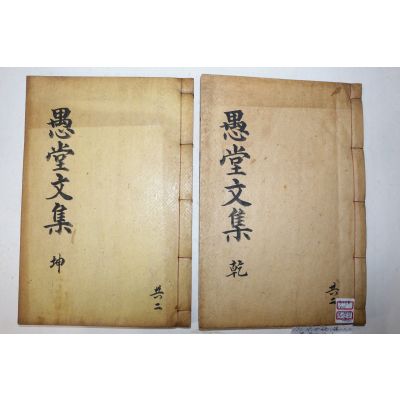 愚堂文集
乾
共二
愚堂文集
坤
共二